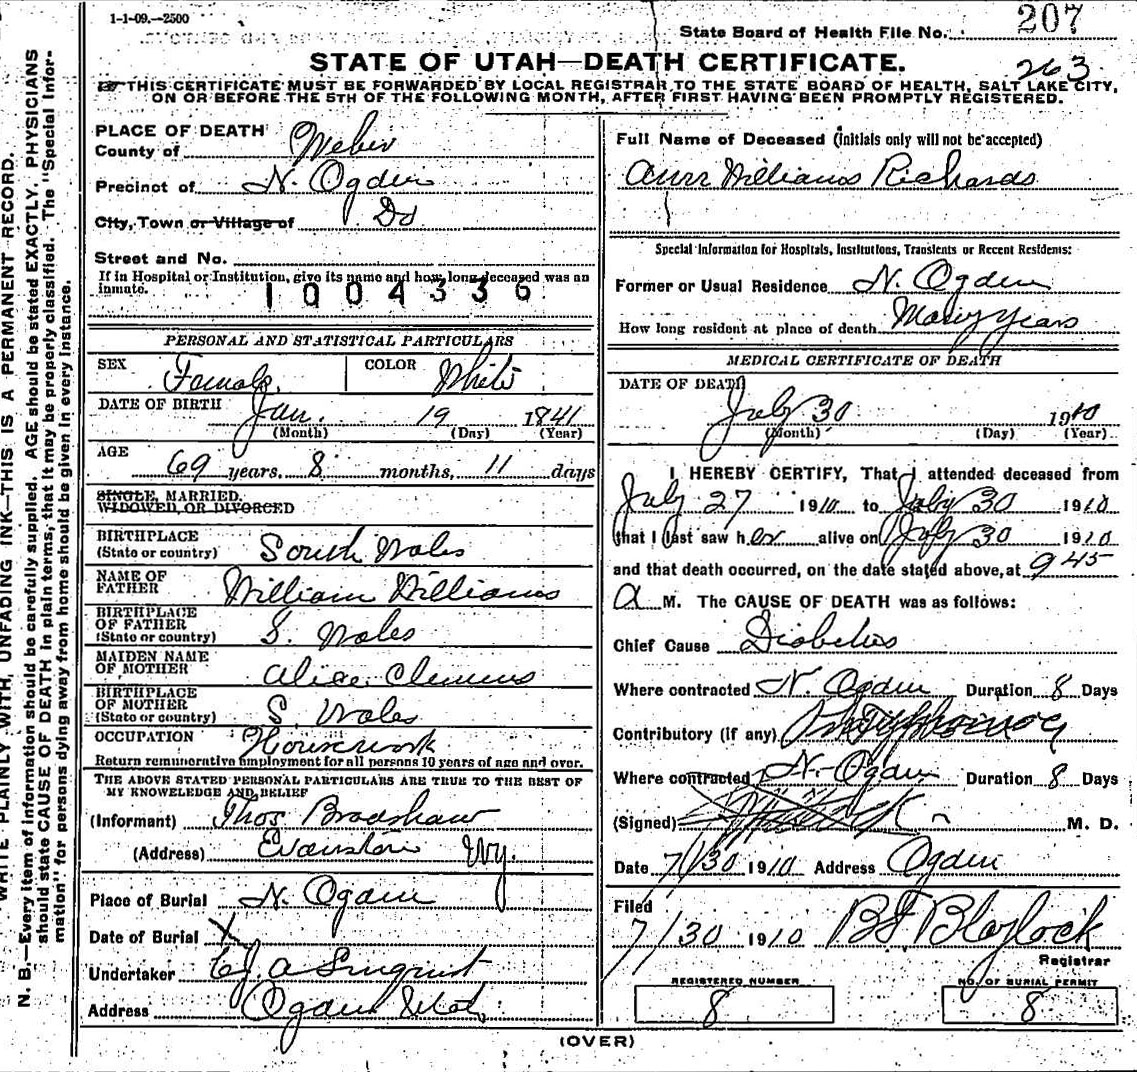 1-1-09.—2500
State Board of Health File No. 207
STATE OF UTAH—DEATH CERTIFICATE.
263
THIS CERTIFICATE MUST BE FORWARDED BY LOCAL REGISTRAR TO THE STATE BOARD OF HEALTH, SALT LAKE CITY,
ON OR BEFORE THE 5TH OF THE FOLLOWING MONTH, AFTER FIRST HAVING BEEN PROMPTLY REGISTERED.
WRITE PLAINLY WITH, UNFADING INK—THIS IS A PERMANENT RECORD.
N. B.—Every item of information should be carefully supplied. AGE should be stated EXACTLY. PHYSICIANS
should state CAUSE OF DEATH in plain terms, that it may be properly classified. The "Special Infor-
mation" for persons dying away from home should be given in every instance.
PLACE OF DEATH
County of Weber
Precinct of N. Ogden
City, Town or Village of Do
Street and No.
If in Hospital or Institution, give its name and how long deceased was an
inmate.
1004336
PERSONAL AND STATISTICAL PARTICULARS
SEX Female COLOR White
DATE OF BIRTH Jan. 19 1841
(Month) (Day) (Year)
AGE 69 years, 8 months, 11 days
SINGLE, MARRIED.
WIDOWED, OR DIVORCED
BIRTHPLACE
(State or country) South Wales
NAME OF
FATHER William Williams
BIRTHPLACE
OF FATHER
(State or country) S. Wales
MAIDEN NAME
OF MOTHER Alice Clemens
BIRTHPLACE
OF MOTHER
(State or country) S. Wales
OCCUPATION Housework
Return remunerative employment for all persons 10 years of age and over.
THE ABOVE STATED PERSONAL PARTICULARS ARE TRUE TO THE BEST OF
MY KNOWLEDGE AND BELIEF
(Informant) Thos Bradshaw
(Address) Evanston Wy.
Place of Burial N. Ogden
Date of Burial
Undertaker
Address Ogden Utah
Full Name of Deceased (initials only will not be accepted)
Ann Williams Richards
Special Information for Hospitals, Institutions, Transients or Recent Residents:
Former or Usual Residence N. Ogden
How long resident at place of death Many Years
MEDICAL CERTIFICATE OF DEATH
DATE OF DEATH
July 30 1910
(Month) (Day) (Year)
I HEREBY CERTIFY, That I attended deceased from
July 27 1910 to July 30 1910
that I last saw her alive on July 30 1910
and that death occurred, on the date stated above, at 9 45
A M. The CAUSE OF DEATH was as follows:
Chief Cause Diabetes
Where contracted N. Ogden Duration 8 Days
Contributory (if any)
Where contracted N. Ogden Duration 8 Days
(Signed) M. D.
Date 7/30 1910 Address Ogden
Filed
7/30 1910 Blaylock
Registrar
REGISTERED NUMBER
8
NO. OF BURIAL PERMIT
8
(OVER)